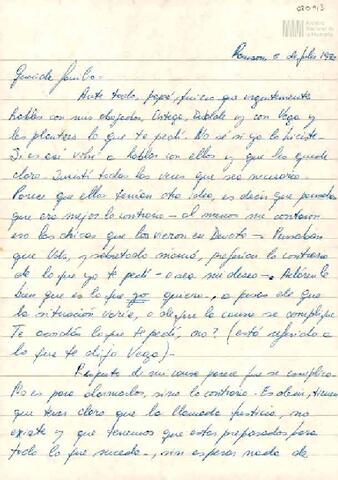 020913
Archivo
Nacional de
la Memoria
Rawson 5 de julio 1980
Querida familia:
Ante todo, papá, quiero que urgentemente
hables con mis abogados, Ortega, y con Vega y
les plantees lo que te pedí. No sé si ya lo hiciste.
Si es así volvé a hablar con ellos y que les quede
claro. Insistí todas las veces que sea necesario.
Parece que ellos tenían otra idea, es decir que pensaban
que era mejor lo contrario - al menos me contaron
eso las chicas que los vieron en Devoto - Pensaban
que Uds, y sobretodo mamá, preferían lo contrario
de lo que yo te pedí - o sea mi deseo - Aclarále
bien que es lo que yo quiero, a pesar de que
la situación varíe, o de que la causa se complique.
Te acordás lo que te pedí, no? (está referido a
lo que te dijo Vega) -
Respecto de mi causa parece que se complica.
No es para alarmarlos, sino lo contrario. Es decir, tienen
que tener claro que la llamada justicia, no
existe y que tenemos que estar preparados para
todo lo que suceda, sin esperar nada de